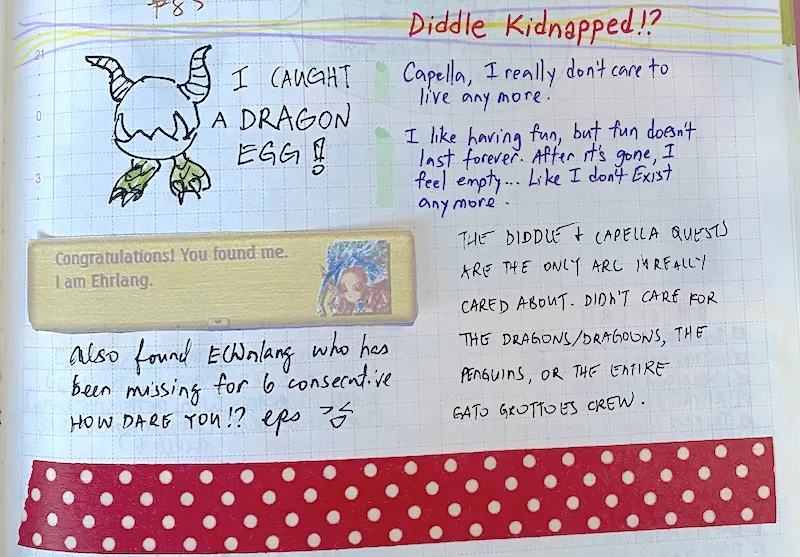 Diddle Kidnapped!?
21
0
3
I CAUGHT
A DRAGON
EGG!
Capella, I really don't care to
live any more.
I like having fun, but fun doesn't
last forever. After it's gone, I
feel empty... Like I don't Exist
any more.
Congratulations! You found me.
I am Ehrlang.
also found E(h)rlang who has
been missing for 6 consecutive
HOW DARE YOU!? eps
THE DIDDLE + CAPELLA QUESTS
ARE THE ONLY ARC I REALLY
CARED ABOUT. DIDN'T CARE FOR
THE DRAGONS/DRAGOONS, THE
PENGUINS, OR THE ENTIRE
GATO GROTTOES CREW.